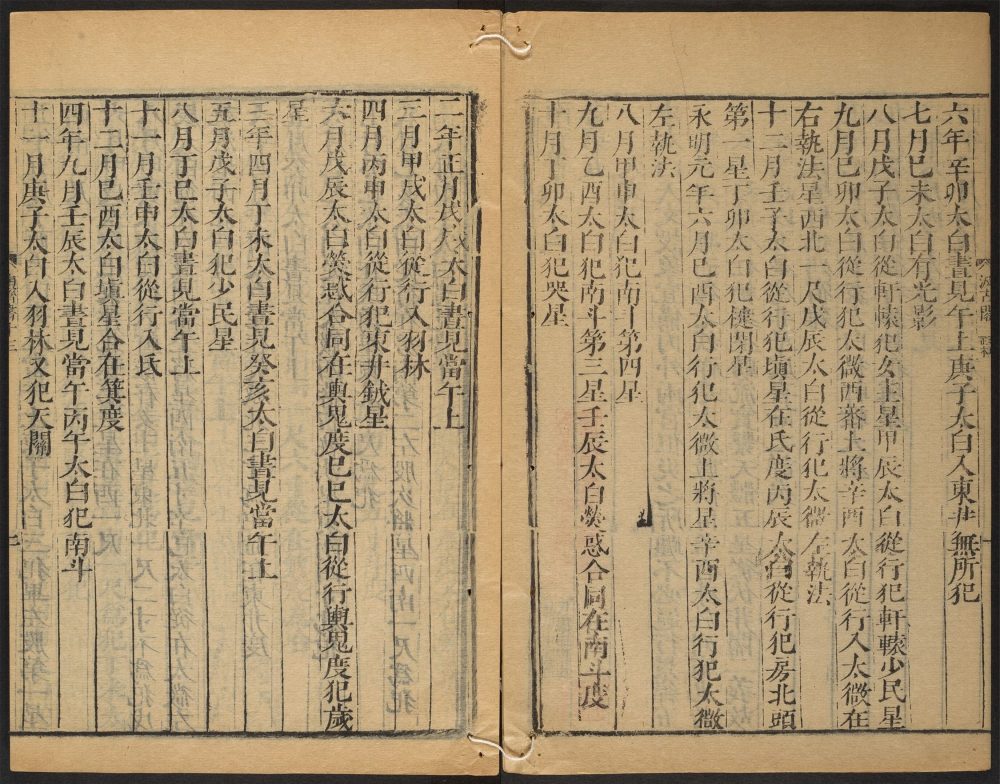 六年辛卯太白晝見午上庚子太白入東井無所犯
七月己未太白有光影
八月戊子太白從軒轅犯女主星甲辰太白從行犯軒轅少民星
九月己卯太白從行犯太微西蕃上將辛酉太白從行入太微在
右執法星西北一尺戊辰太白從行犯太微左執法
十二月壬子太白從行犯塡星在氐度丙辰太白從行犯房北頭
第一星丁卯太白犯楗閉星
永明元年六月己酉太白行犯太微上將星辛酉太白行犯太微
左執法
八月甲申太白犯南斗第四星
九月乙酉太白犯南斗第三星壬辰太白熒惑合同在南斗度
十月丁卯太白犯哭星
二年正月戊戌太白晝見當午上
三月甲戌太白從行入羽林
四月丙申太白從行犯東井鉞星
六月戊辰太白熒惑合同在輿鬼度己巳太白從行輿鬼度犯歲
星
三年四月丁未太白晝見癸亥太白晝見當午上
五月戊子太白犯少民星
八月丁巳太白晝見當午上
十一月壬申太白從行入氐
十二月己酉太白塡星合在箕度
四年九月壬辰太白晝見當午丙午太白犯南斗
十一月庚子太白入羽林又犯天關